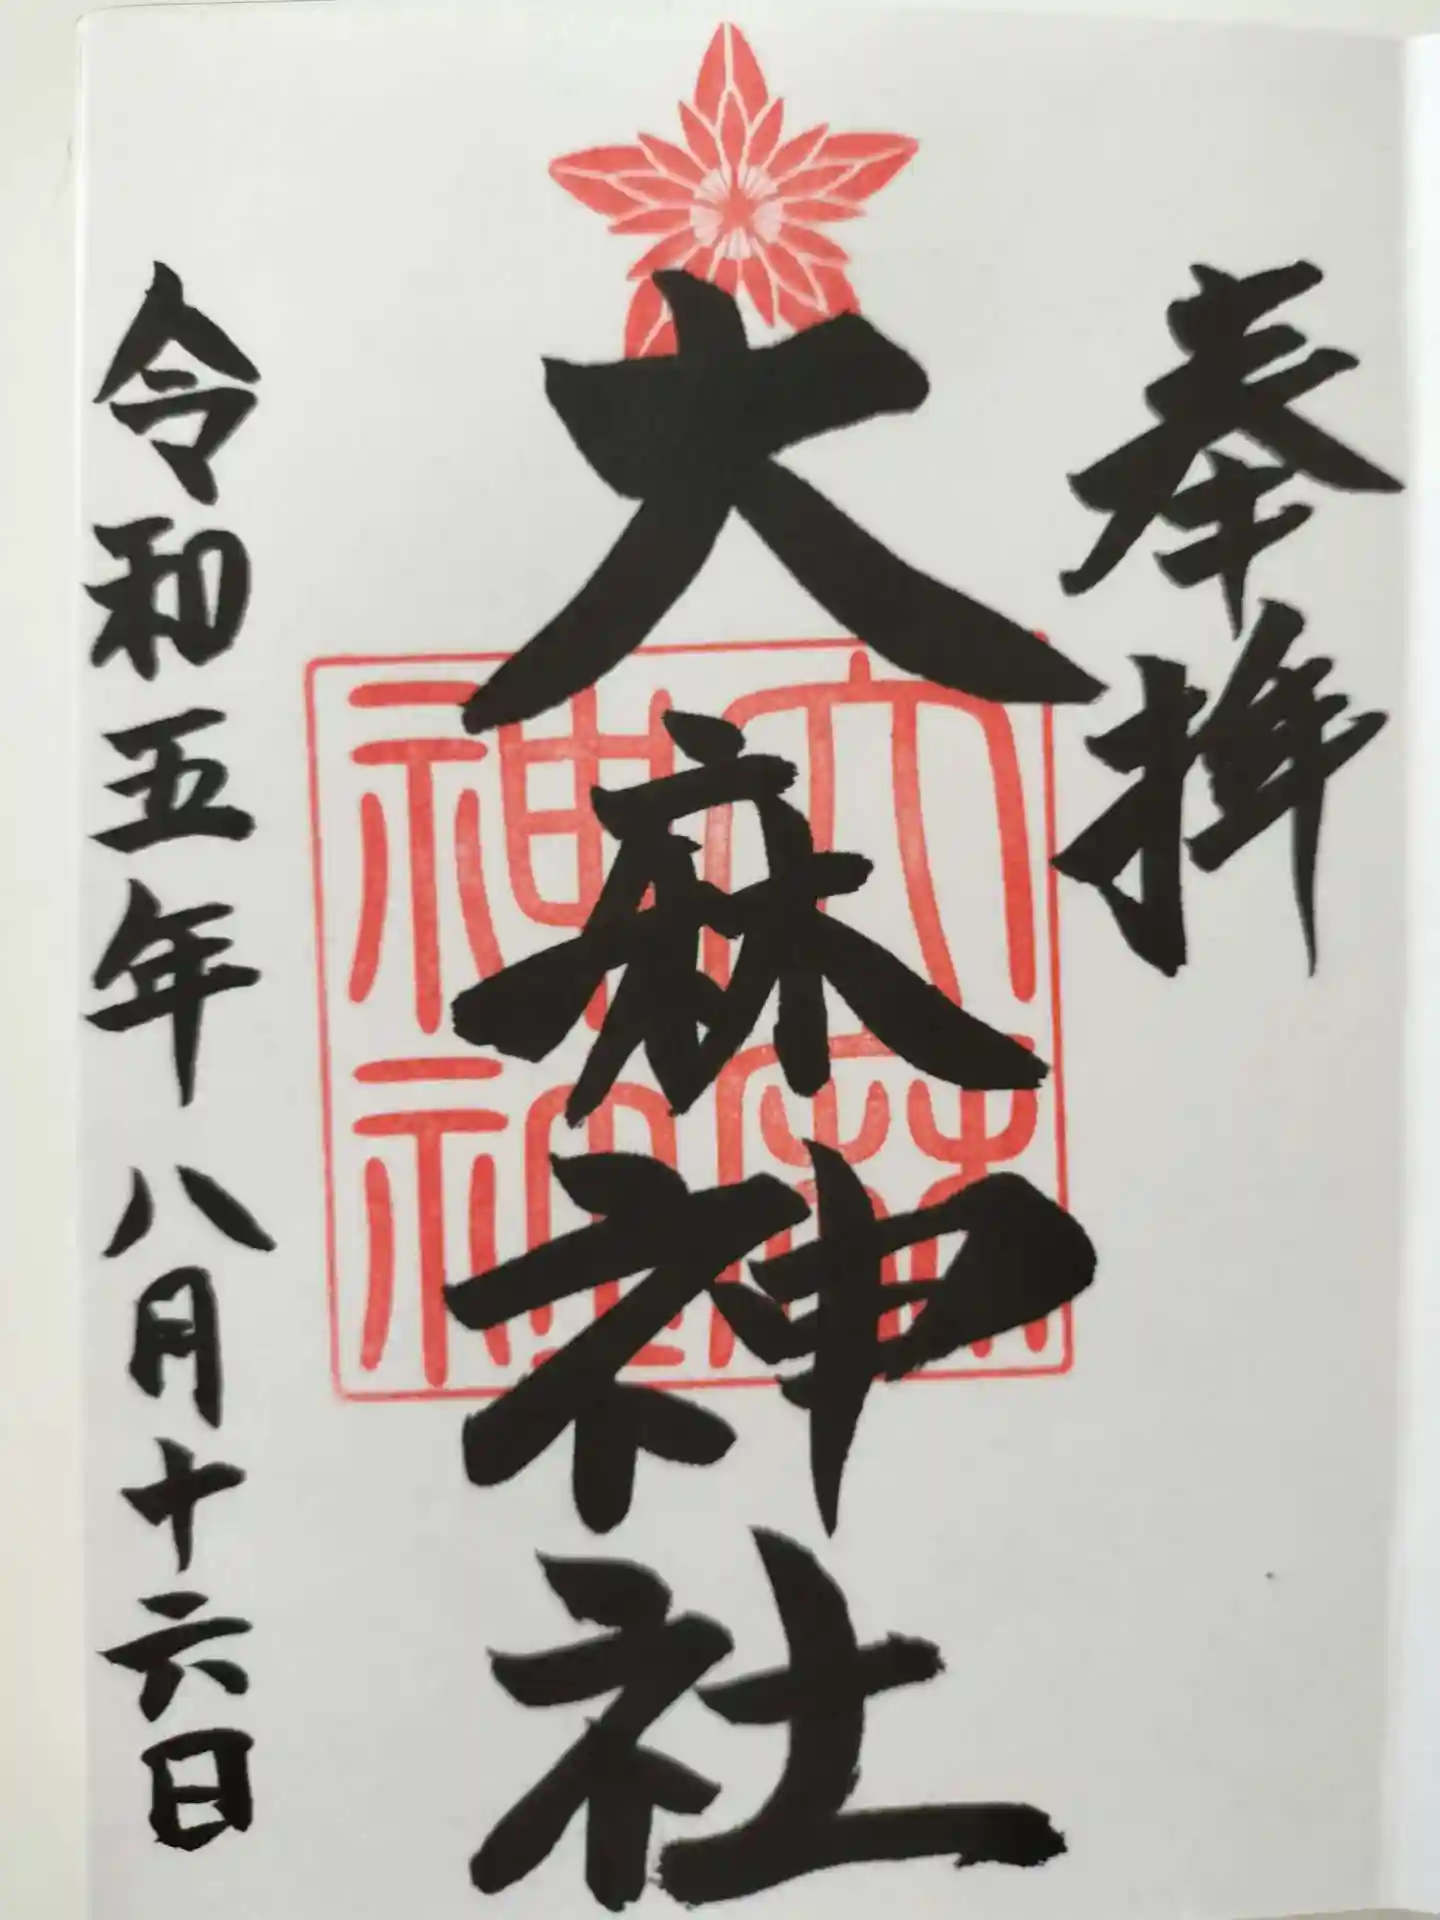 奉拝
大麻神社
大麻神社
令和五年八月十六日